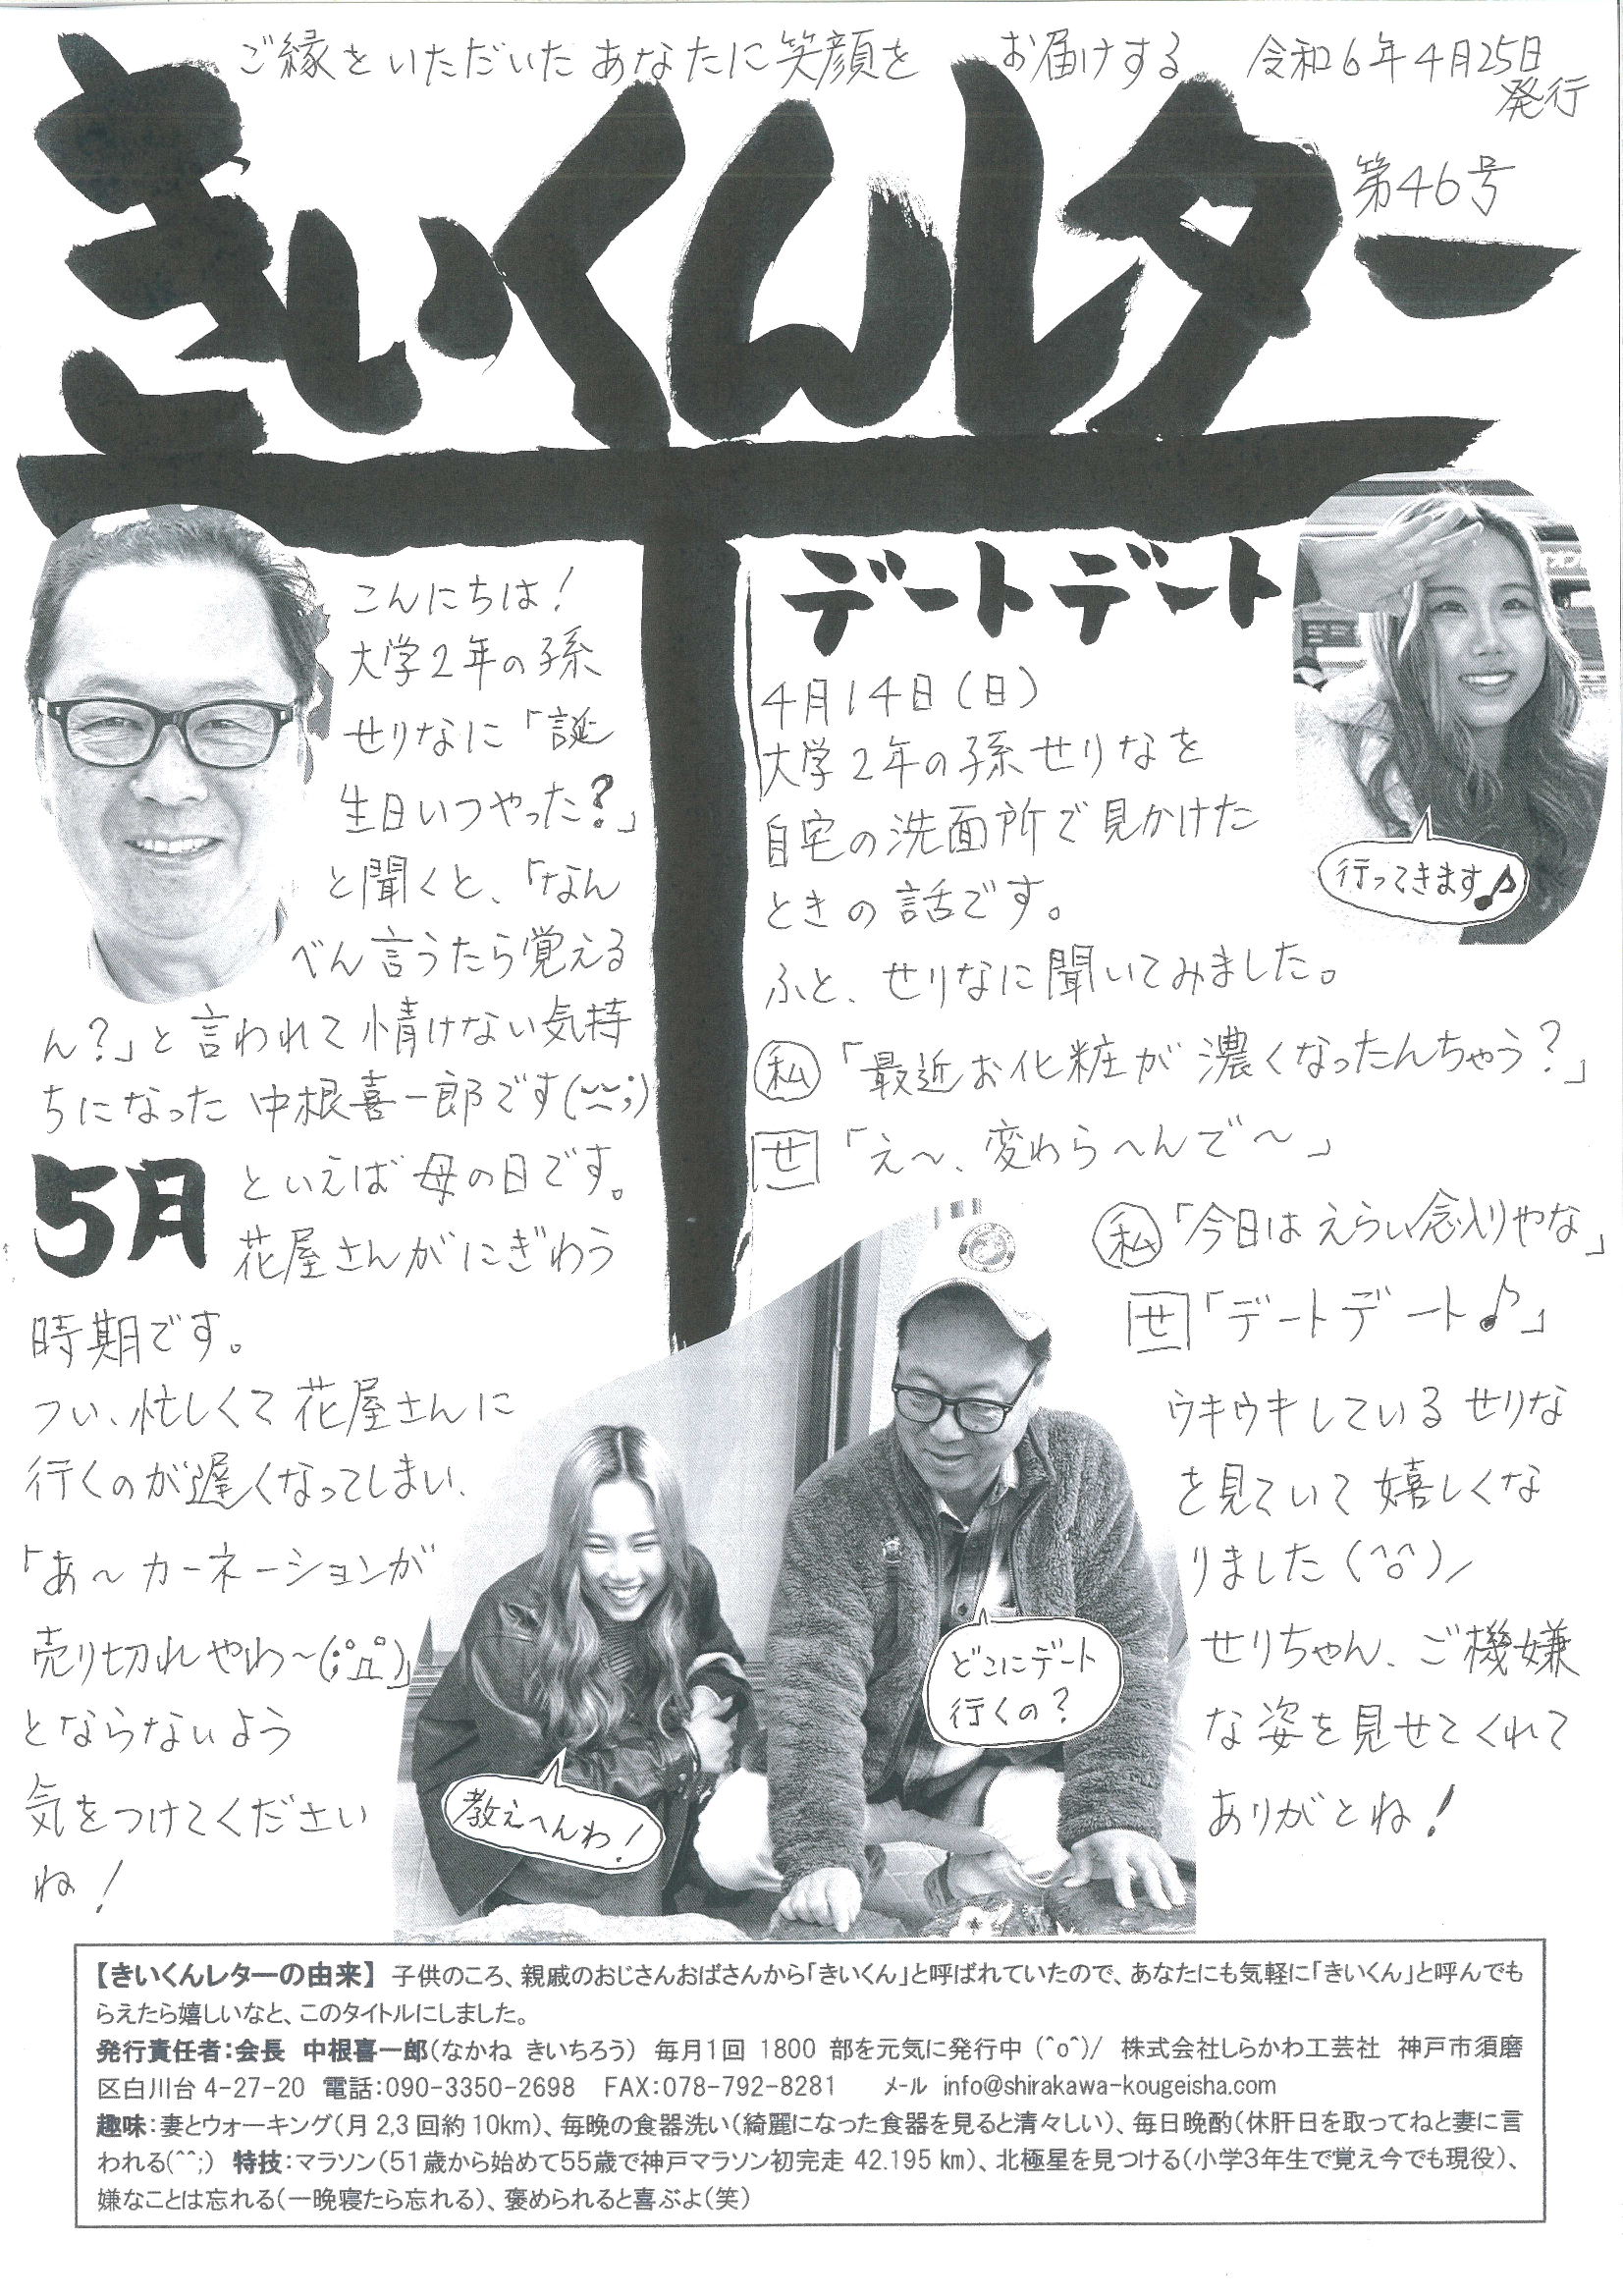 ご縁をいただいたあなたに笑顔を お届けする 令和6年4月25日
発行
きいくんレター
第46号
こんにちは！
大学2年の孫
せりなに「誕
生日いつやった？」
と聞くと、「なん
べん言うたら覚える
ん？」と言われて情けない気持
ちになった中根喜一郎です(~~;)
5月といえば母の日です。
花屋さんがにぎわう
時期です。
つい、忙しくて花屋さんに
行くのが遅くなってしまい、
「あ～カーネーションが
売り切れやわ～(;゜Д゜)」
とならないよう
気をつけてください
ね！
デートデート
4月14日(日)
大学2年の孫せりなを
自宅の洗面所で見かけた
ときの話です。
ふと、せりなに聞いてみました。
行ってきます♪
私「最近お化粧が濃くなったんちゃう？」
せ「え～、変わらへんで～」
私「今日はえらい念入りやな」
せ「デートデート♪」
ウキウキしているせりな
を見ていて嬉しくな
りました(^o^)/
せりちゃん、ご機嫌
な姿を見せてくれて
ありがとね！
どこにデート
行くの？
教えへんわ！
【きいくんレターの由来】 子供のころ、親戚のおじさんおばさんから「きいくん」と呼ばれていたので、あなたにも気軽に「きいくん」と呼んでも
らえたら嬉しいなと、このタイトルにしました。
発行責任者：会長 中根喜一郎(なかね きいちろう) 毎月1回 1800 部を元気に発行中 (^o^)/ 株式会社しらかわ工芸社 神戸市須磨
区白川台 4-27-20 電話：090-3350-2698 FAX：078-792-8281 ﾒｰﾙ info@shirakawa-kougeisha.com
趣味：妻とウォーキング(月 2,3 回約 10km)、毎晩の食器洗い(綺麗になった食器を見ると清々しい)、毎日晩酌(休肝日を取ってねと妻に言
われる(^^;) 特技：マラソン(51歳から始めて55歳で神戸マラソン初完走 42.195 km)、北極星を見つける(小学3年生で覚え今でも現役)、
嫌なことは忘れる(一晩寝たら忘れる)、褒められると喜ぶよ(笑)